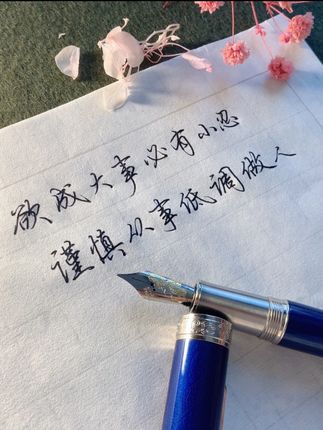 欲成大事必有小忍
谨慎从事低调做人